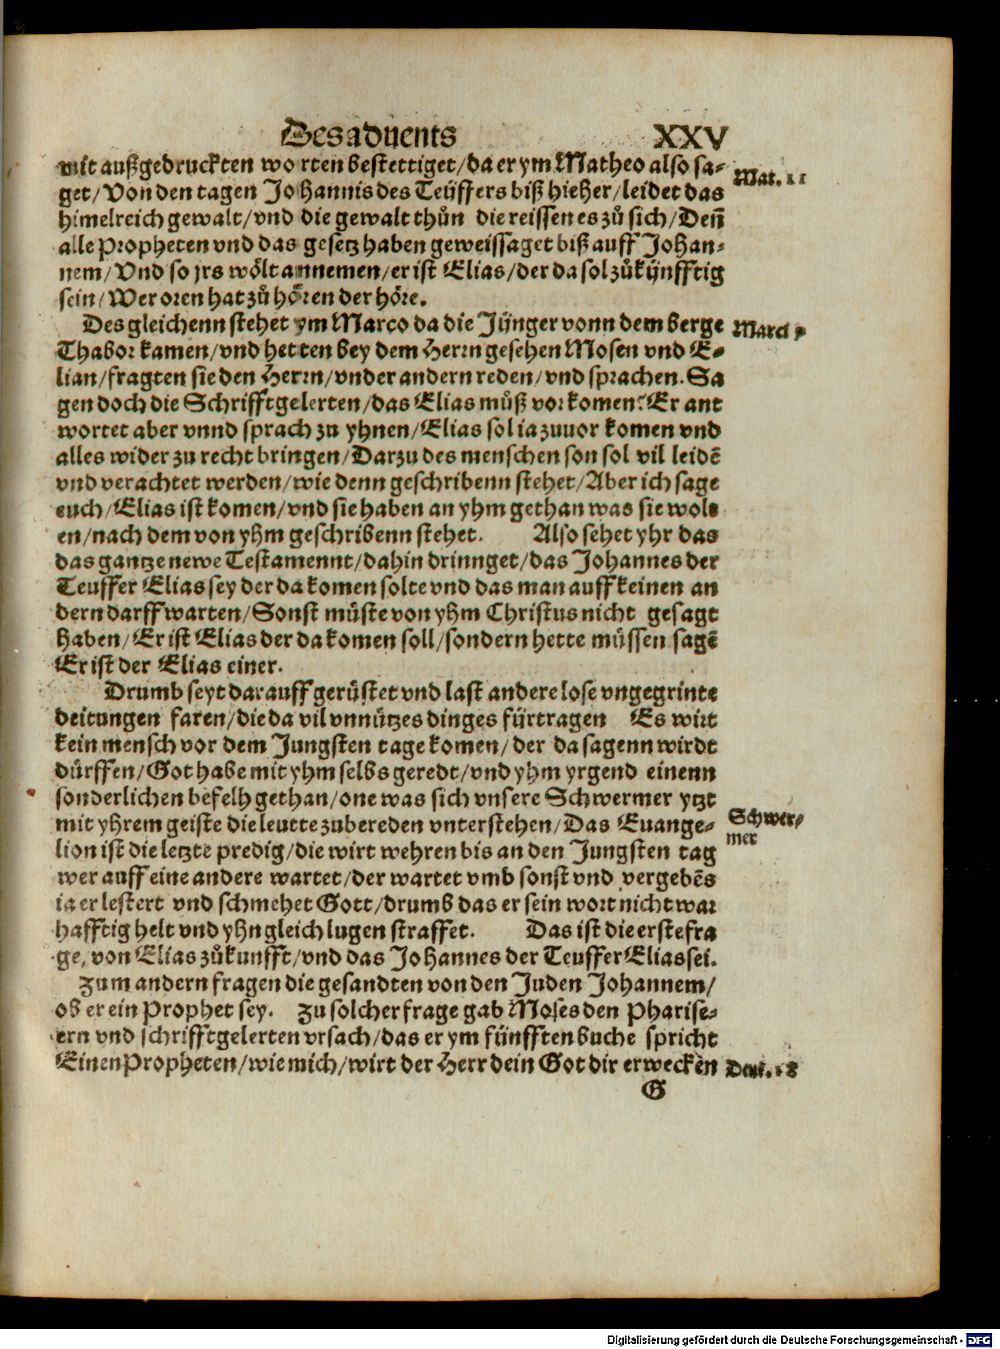 Des aduents XXV
mit außgedruckten worten bestettiget/da er ym Matheo also sa-
Mat. 11
get/Von den tagen Johannis des Teüffers biß hieher/leidet das
himelreich gewalt/vnd die gewalt thůn die reissen es zů sich/Deñ
alle Propheten vnd das gesetz haben geweissaget biß auff Johan-
nem/Vnd so jrs wölt annemen/er ist Elias/der da sol zůkünfftig
sein/Wer oren hat zů hören der höre.
Des gleichenn stehet ym Marco da die Jünger vonn dem berge
Marci 9
Thabor kamen/vnd hetten bey dem Herrn gesehen Mosen vnd E-
lian/fragten sie den Herrn/vnder andern reden/vnd sprachen. Sa
gen doch die Schrifftgelerten/das Elias můß vor komen? Er ant
wortet aber vnnd sprach zu yhnen/Elias sol ia zuuor komen vnd
alles wider zu recht bringen/Darzu des menschen son sol vil leidē
vnd verachtet werden/wie denn geschribenn stehet/Aber ich sage
euch/Elias ist komen/vnd sie haben an yhm gethan was sie wol-
en/nach dem von yhm geschribenn stehet. Also sehet yhr das
das gantze newe Testamennt/dahin drinnget/das Johannes der
Teuffer Elias sey der da komen solte vnd das man auff keinen an
dern darff warten/Sonst můste von yhm Christus nicht gesagt
haben/Er ist Elias der da komen soll/sondern hette müssen sagē
Er ist der Elias einer.
Drumb seyt darauff gerüstet vnd last andere lose vngegrinte
deitungen faren/die da vil vnnützes dinges fürtragen Es wirt
kein mensch vor dem Jungsten tage komen/der da sagenn wirdt
dürffen/Got habe mit yhm selbs geredt/vnd yhm yrgend einenn
sonderlichen befelh gethan/one was sich vnsere Schwermer ytzt
Schwer-
mer
mit yhrem geiste die leutte zubereden vnterstehen/Das Euange-
lion ist die letzte predig/die wirt wehren bis an den Jungsten tag
wer auff eine andere wartet/der wartet vmb sonst vnd vergebēs
ia er lestert vnd schmehet Gott/drumb das er sein wort nicht war
hafftig helt vnd yhn gleich lugen straffet. Das ist die erste fra
ge, von Elias zůkunfft/vnd das Johannes der Teuffer Elias sei.
Zum andern fragen die gesandten von den Juden Johannem/
ob er ein Prophet sey. Zu solcher frage gab Moses den Pharise-
ern vnd schrifftgelerten vrsach/das er ym fünfften buche spricht
Einen Propheten/wie mich/wirt der Herr dein Got dir erwecken
Deut. 18
G
Digitalisierung gefördert durch die Deutsche Forschungsgemeinschaft - DFG